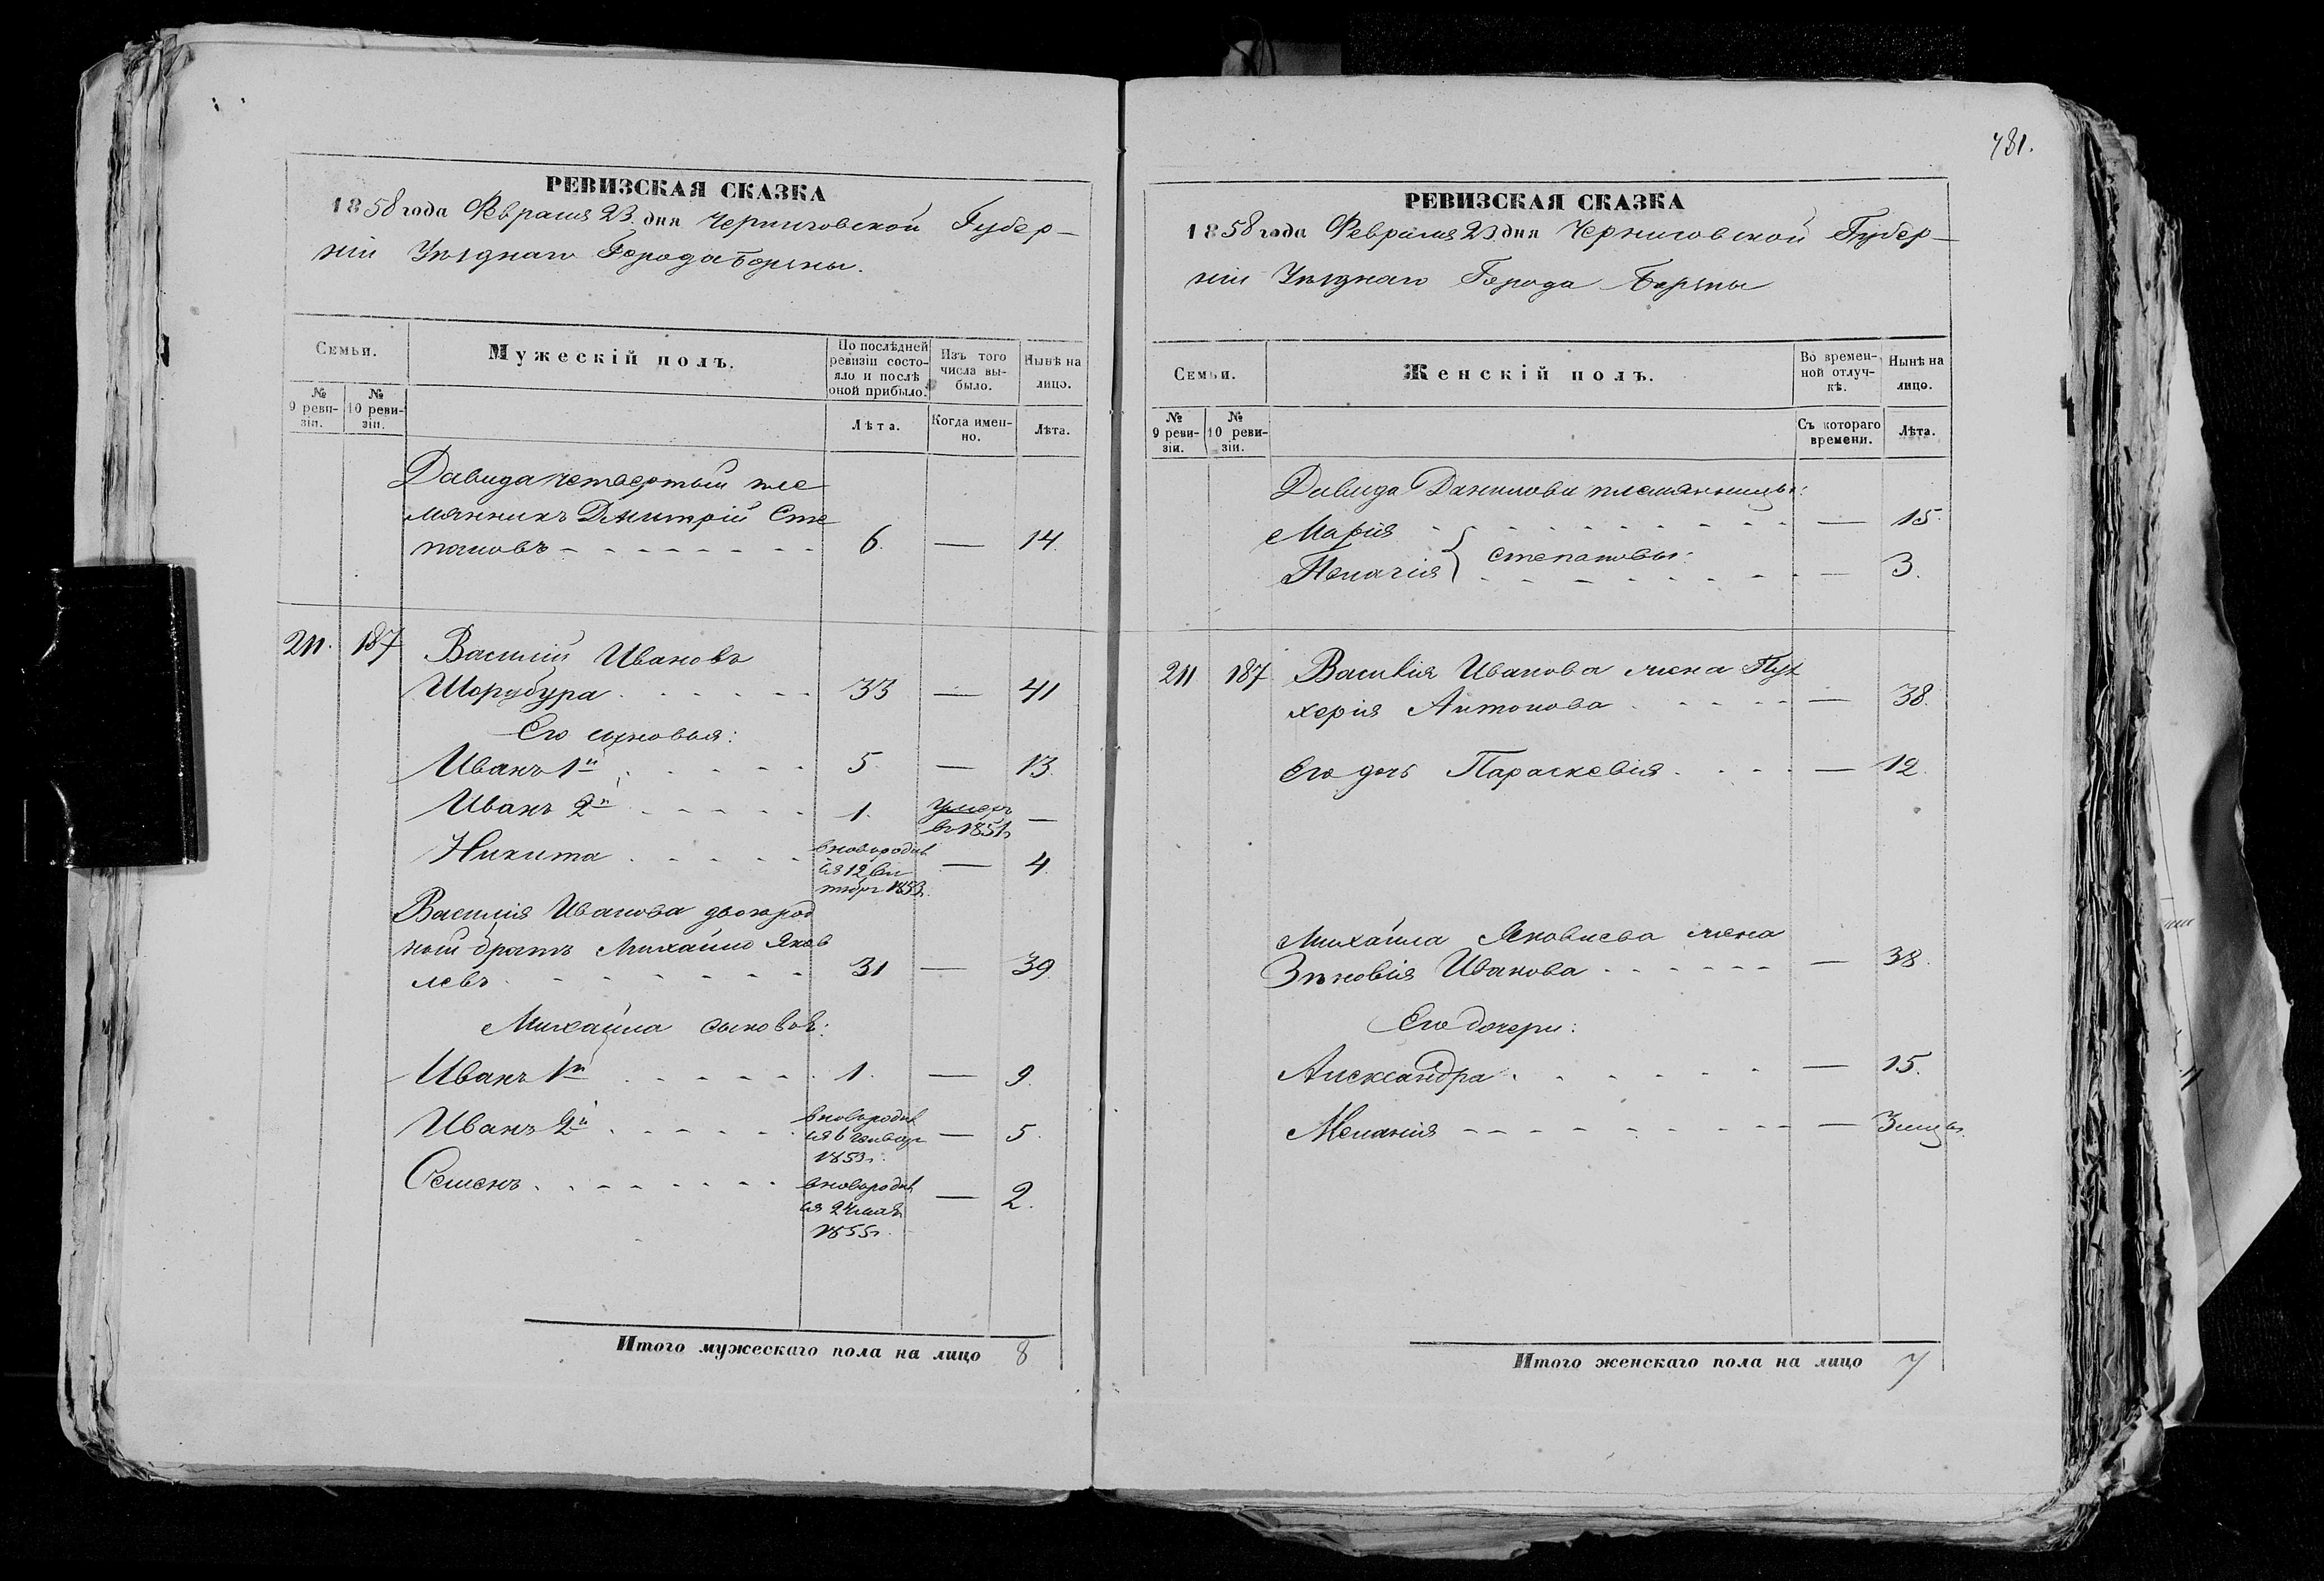 РЕВИЗСКАЯ СКАЗКА
1858 года Февраля 23 дня Черниговской Губер–
ніи Уѣзднаго Города Борзны.
Семьи.
Мужескій полъ.
По послѣдней ревизіи состояло и послѣ оной прибыло.
Изъ того числа выбыло.
Нынѣ на лицо.
№ 9 ревизіи.
№ 10 ревизіи.
Лѣта.
Когда именно.
Лѣта.
Давида четвертый пле
мянникъ Дмитрій Сте
пановъ 6. — 14.
211. 187 Василій Ивановъ
Шорубура 33 — 41
Его сыновья:
Иванъ 1й 5. — 13.
Иванъ 2й 1. умеръ —
въ 1851г
Никита вновьродив — 4.
ся 12
1853г.
Василія Иванова двоюрод
ный братъ Михайло Яков
левъ 31 — 39.
Михайла сыновья:
Иванъ 1й 1. — 9.
Иванъ 2й вновьродив — 5.
ся 6 январ
1853г.
Семенъ вновьродив — 2.
ся 24 мая
1855г.
Итого мужескаго пола на лицо 8
481.
РЕВИЗСКАЯ СКАЗКА
1858 года Февраля 23 дня Черниговской Губер–
ніи Уѣзднаго Города Борзны
Семьи.
Женскій полъ.
Во временной отлучкѣ.
Нынѣ на лицо.
№ 9 ревизіи.
№ 10 ревизіи.
Съ котораго времени.
Лѣта.
Давида Данилова племянницы:
Марія — 15.
Степановы:
Пелагія — 3.
211 187 Василія Иванова жена Пул
херія Антонова — 38.
Его дочь Параскевія — 12.
Михайла Яковлева жена
Зѣновія Иванова — 38.
Его дочери:
Александра — 15.
Меланія — 3 мцы.
Итого женскаго пола на лицо 7